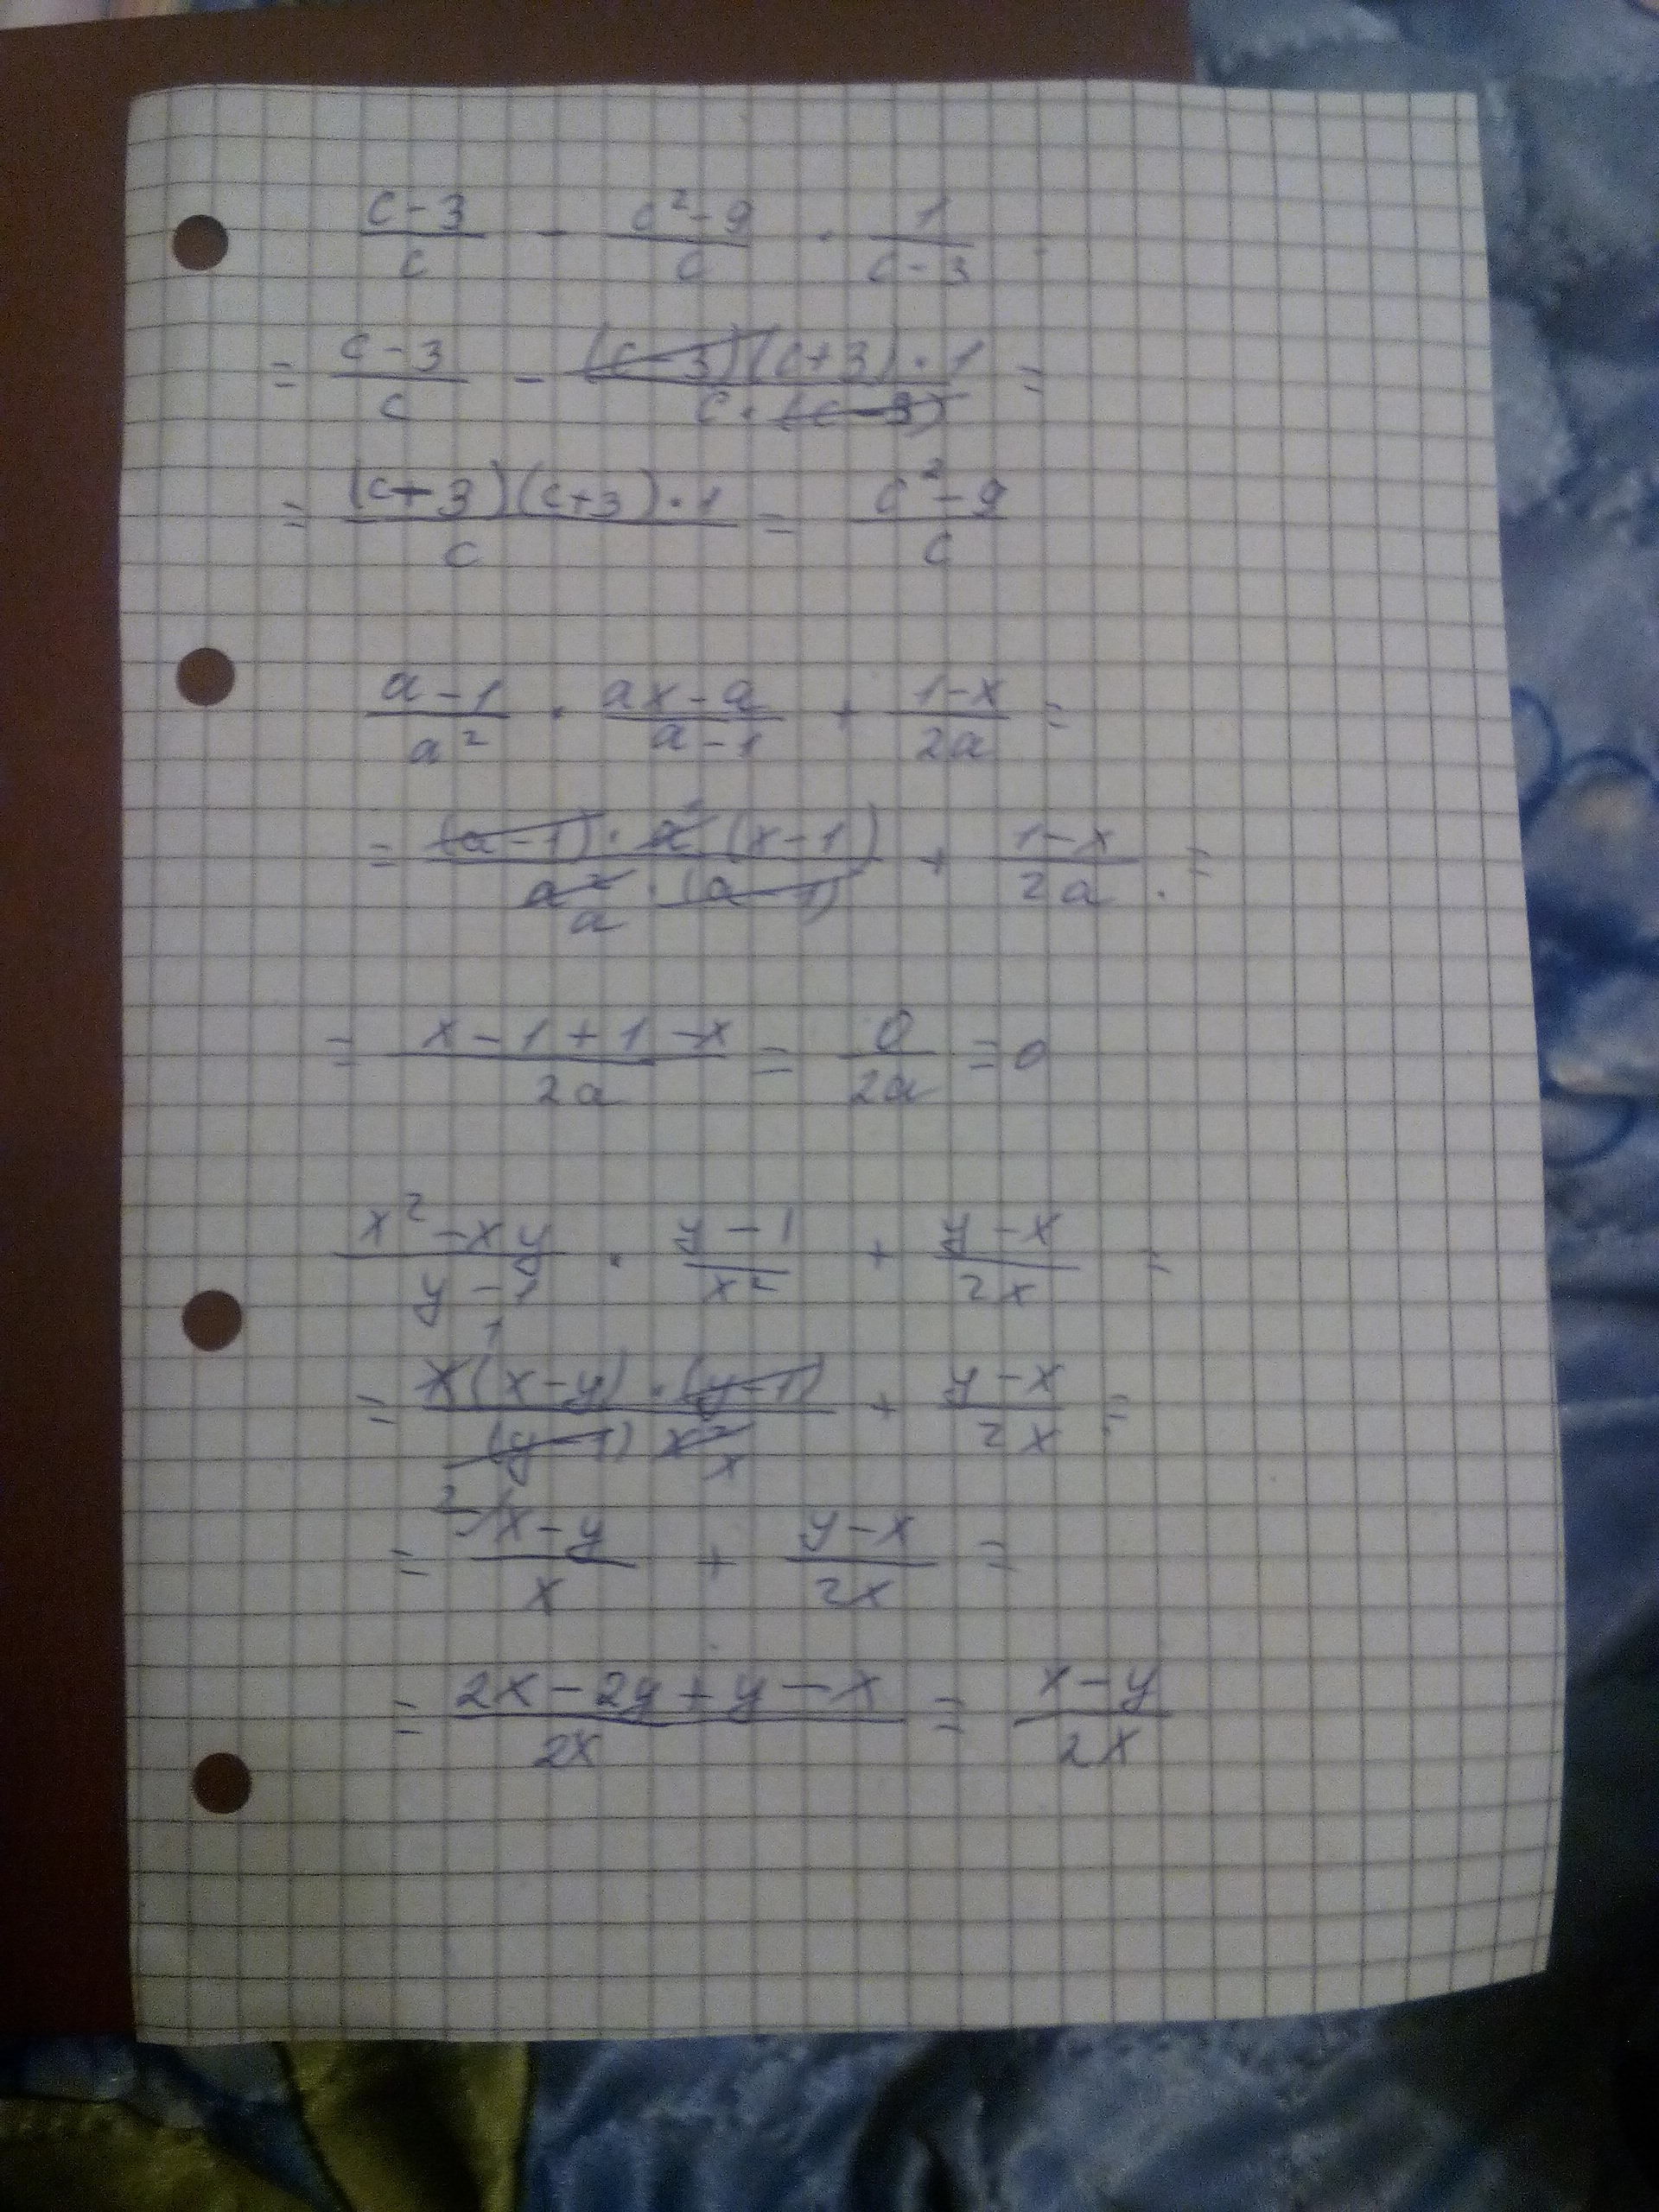 (c-3)/c - (c²-9)/c · 1/(c-3) =
= (c-3)/c - ((c-3)(c+3)·1)/(c·(c-3)) =
= ((c-3)(c+3)·1)/c = (c²-9)/c
(a-1)/a² · (ax-a)/(a-1) + (1-x)/2a =
= ((a-1)·a¹(x-1))/(a²·(a-1)) + (1-x)/2a =
a
= (x-1+1-x)/2a = 0/2a = 0
(x²-xy)/(y-1) · (y-1)/x² + (y-x)/2x =
1
= (x(x-y)·(y-1))/((y-1) x²) + (y-x)/2x =
x
= ²⁾(x-y)/x + (y-x)/2x =
= (2x-2y+y-x)/2x = (x-y)/2x